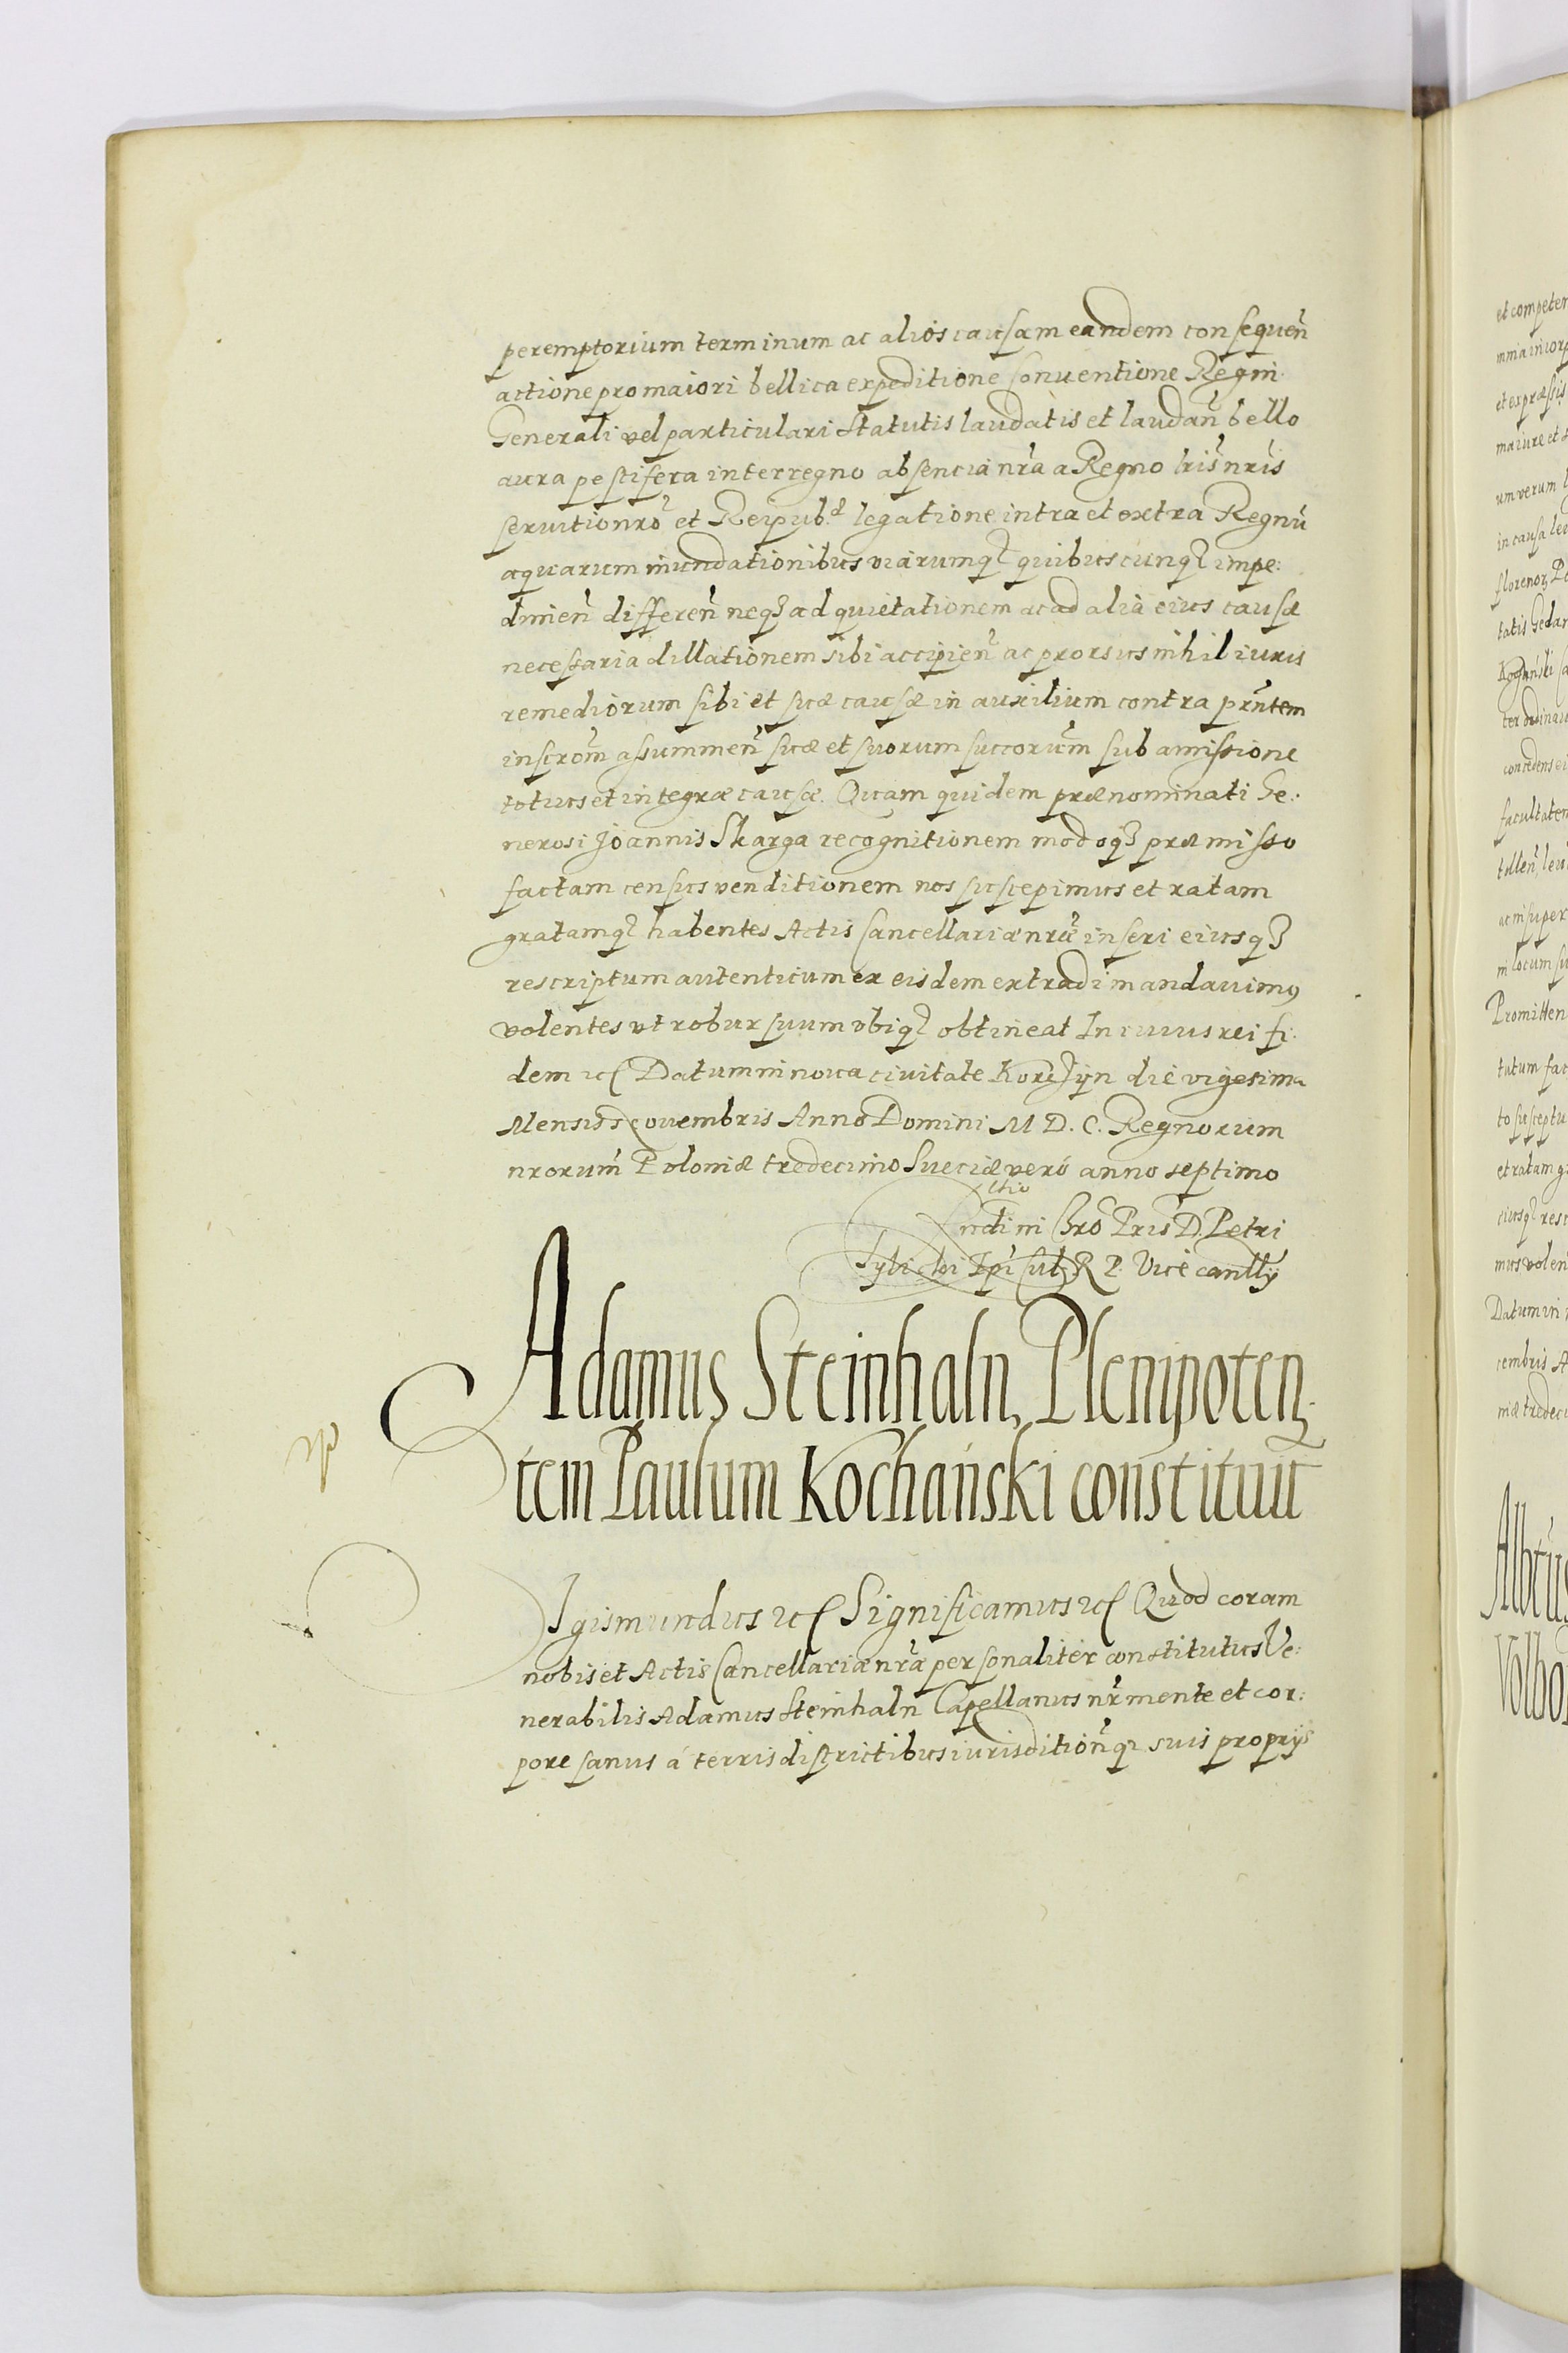 peremptorium terminum ac alios causam eandem consequen̄
actione pro maiori bellica expeditione Conuentione Regni
Generali vel particulari Statutis laudatis et laudan̄ bello
aura pestifera interregno absencia nr̄a a Regno lris nris
seruitio nrō et Reipub.æ legatione intra et extra Regnū
aquarum inundationibus viarumq3 quibuscunq3 impe:
dimen̄ differen̄ neq3 ad quietationem ac ad alia eius causæ
necessaria dillationem sibi accipien̄ ac prorsus nihil iuris
remediorum sibi et suæ causæ in auxilium contra prn̄tem
inscrom̄ assummen̄ suæ et suorum succorum̄ sub amissione
totius et integræ causæ. Quam quidem prænominati Ge:
nerosi Joannis Skarga recognitionem modoq3 præmisso
factam census venditionem nos suscepimus et ratam
gratamq3 habentes Actis Cancellariæ nrǣ inseri eiusq3
rescriptum autenticum ex eisdem extradi mandauimꝯ
volentes vt robur suum vbiq3 obtineat In cuius rei fi:
dem etc Datum in noua ciuitate Korczyn die vigesima
Mensis Nouembris Anno Domini M D. C. Regnorum
nrorum̄ Poloniæ tredecimo Sueciæ veró anno septimo
ctio
ndi in Chrō Pris D. Petri
Tylicki Epi Cul. R P. Vicecanllij
Adamus Steinhaln, Plenipoten:
tem Paulum Kochański constituit
Sigismundus etc Significamus etc Quod coram
nobis et Actis Cancellariæ nr̄æ personaliter constitutus Ve:
nerabilis Adamus Steinhaln Capellanus nr̄ mente et cor:
pore sanus á terris districtibus iurisdition̄q3 suis proprijs
et competen
et expræssis
maiure et
um verum
in causa
florenor3
tatis Gedan
concedens
facultatem
tollen̄
ac in super
in locum
Promitten
tutum fac
to susceptu
et ratam
eiusq3 resc
mus volen
Datum in
cembris A
niæ tredeci
Albtus
Volbor